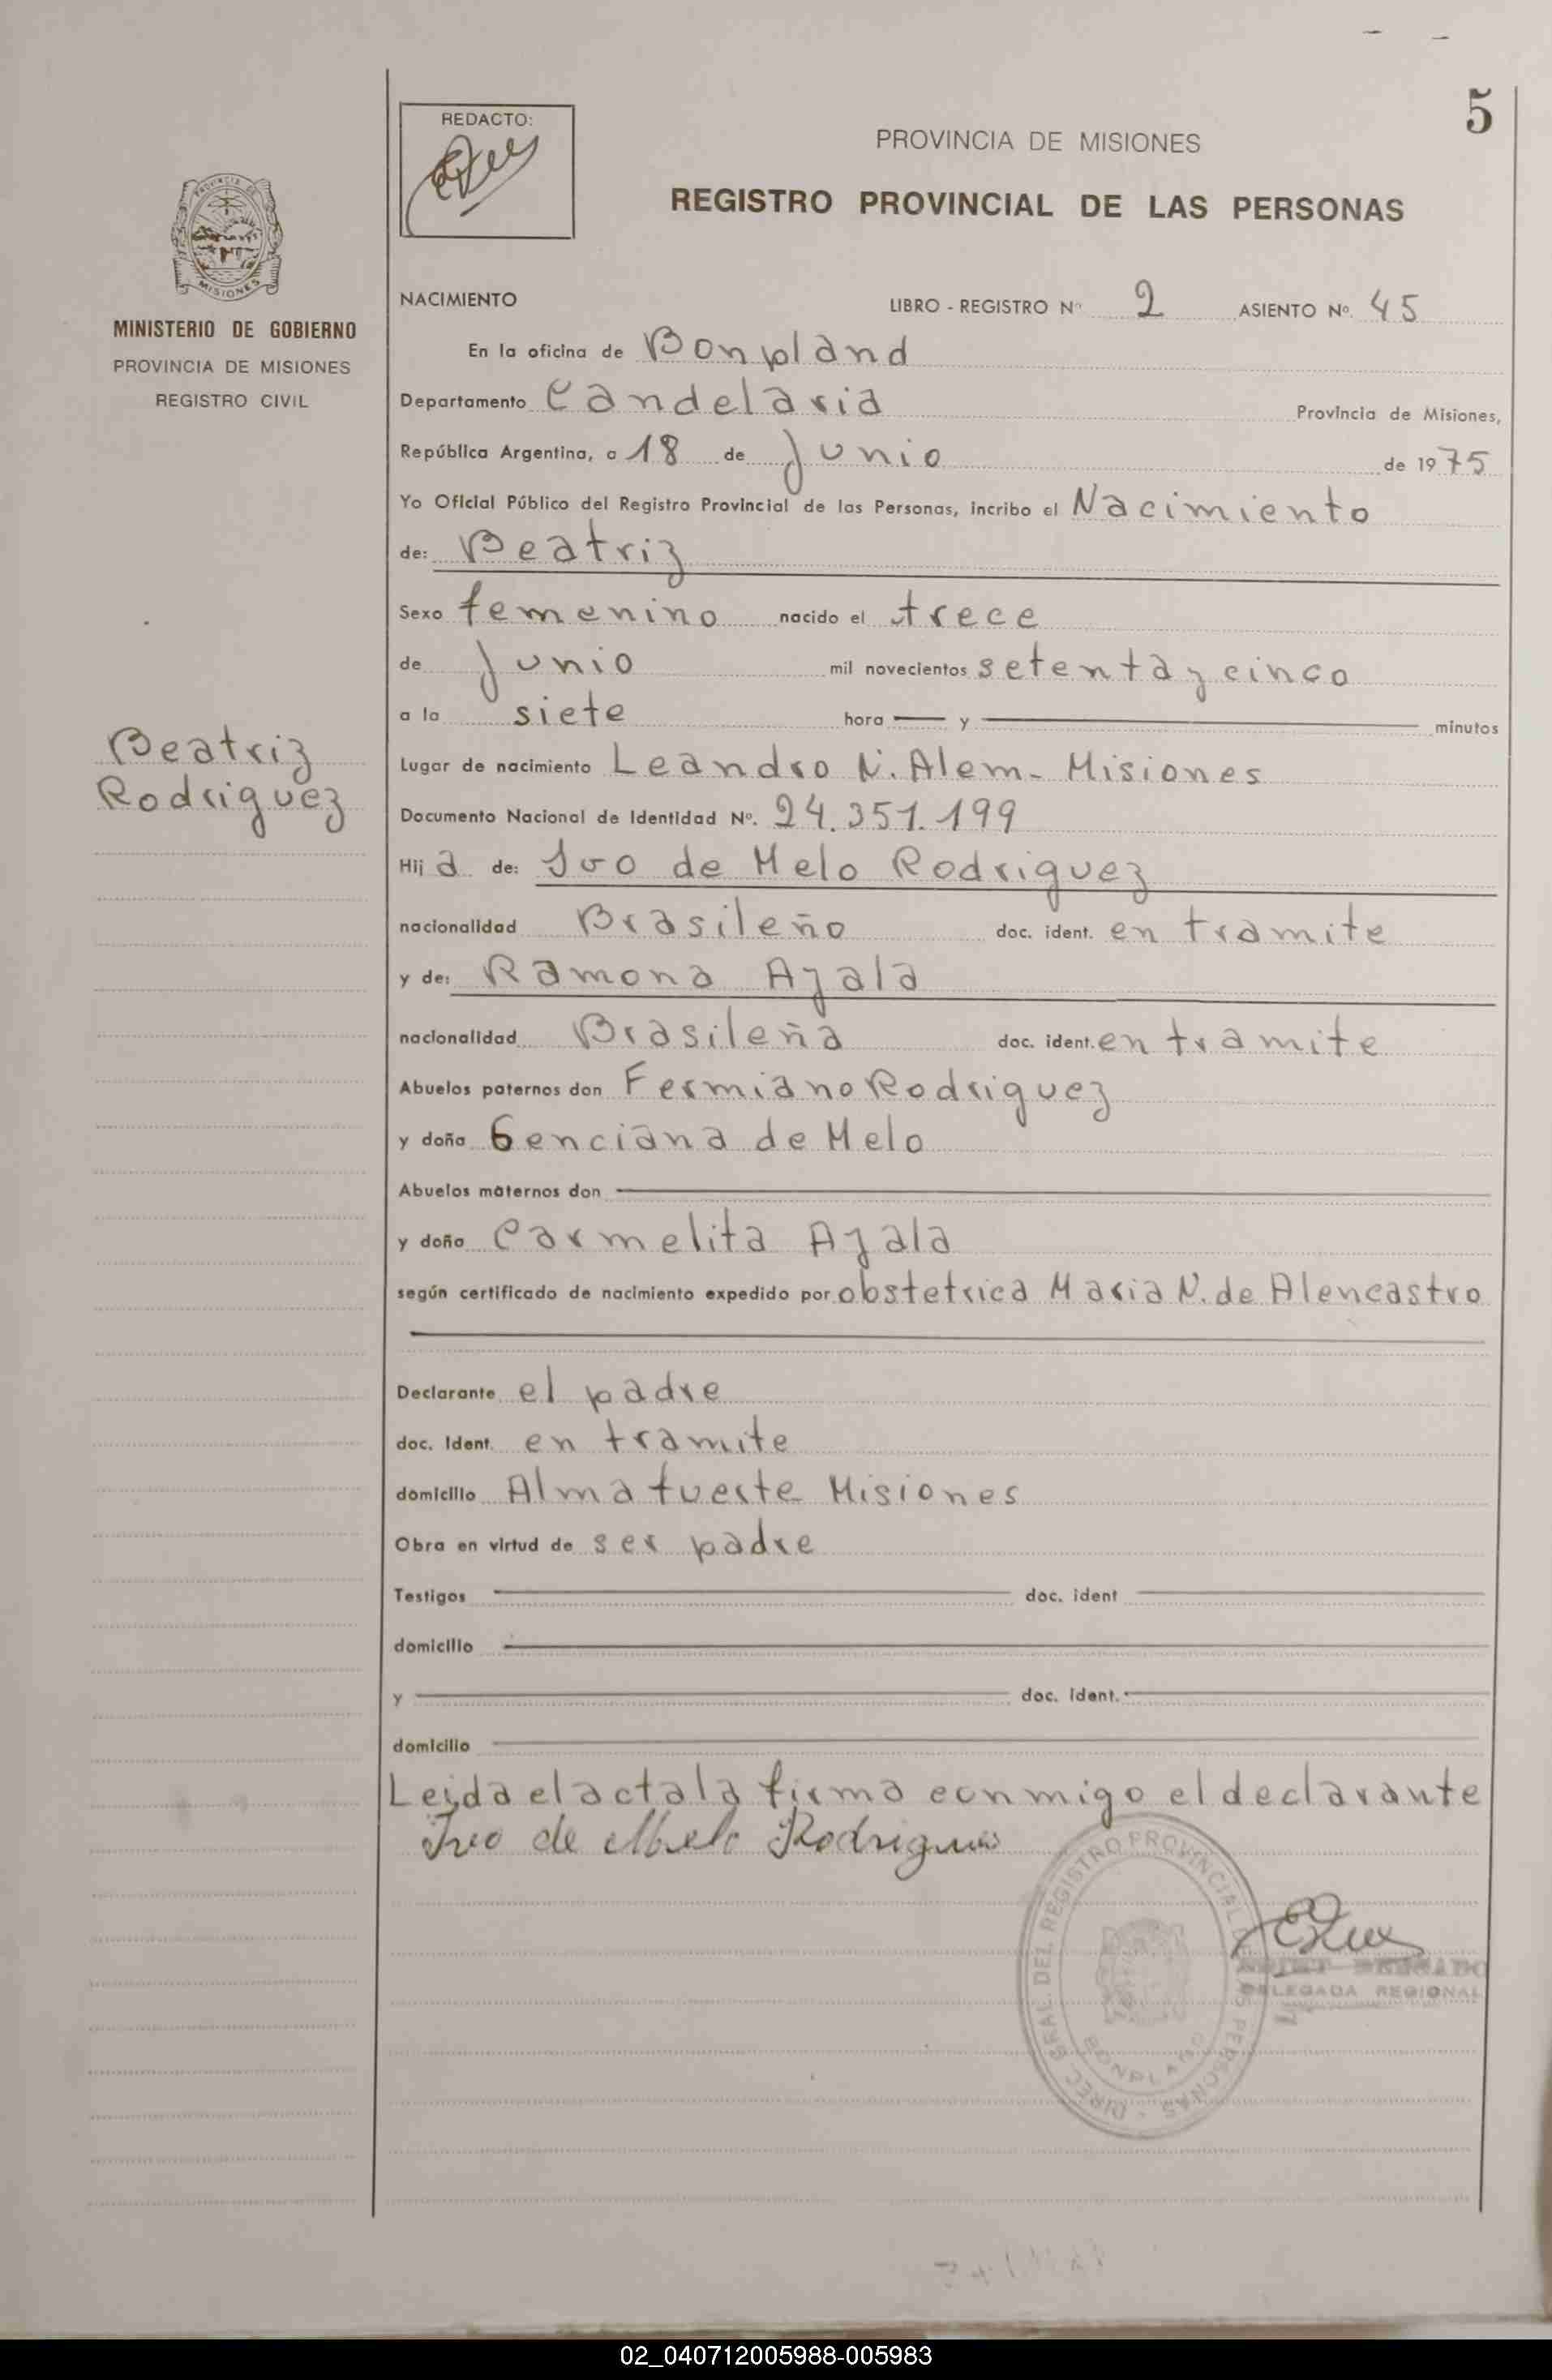 5
REDACTO:
PROVINCIA DE MISIONES
REGISTRO PROVINCIAL DE LAS PERSONAS
MISIONES
MINISTERIO DE GOBIERNO
PROVINCIA DE MISIONES
REGISTRO CIVIL
NACIMIENTO
LIBRO - REGISTRO Nº 2 ASIENTO Nº. 45
En la oficina de Bonpland
Departamento Candelaria Provincia de Misiones,
República Argentina, a 18 de Junio de 1975
Yo Oficial Público del Registro Provincial de las Personas, incribo el Nacimiento
de: Beatriz
Sexo femenino nacido el trece
de Junio mil novecientos setenta y cinco
a la siete hora — y — minutos
Beatriz
Rodriguez
Lugar de nacimiento Leandro N. Alem - Misiones
Documento Nacional de Identidad Nº. 24.351.199
Hija de: Ivo de Melo Rodriguez
nacionalidad Brasileño doc. ident. en tramite
y de: Ramona Ayala
nacionalidad Brasileña doc. ident. en tramite
Abuelos paternos don Fermiano Rodriguez
y doña Genciana de Melo
Abuelos maternos don —
y doña Carmelita Ayala
según certificado de nacimiento expedido por obstetrica Maria N. de Alencastro
Declarante el padre
doc. Ident. en tramite
domicilio Almafuerte Misiones
Obra en virtud de ser padre
Testigos — doc. ident —
domicilio —
y — doc. ident. —
domicilio —
Leida el acta la firma conmigo el declarante
Ivo de Melo Rodrigues
DIREC. GRAL. DEL REGISTRO PROVINCIAL DE LAS PERSONAS -
BONPLAND
DELEGADA REGIONAL
02_040712005988-005983